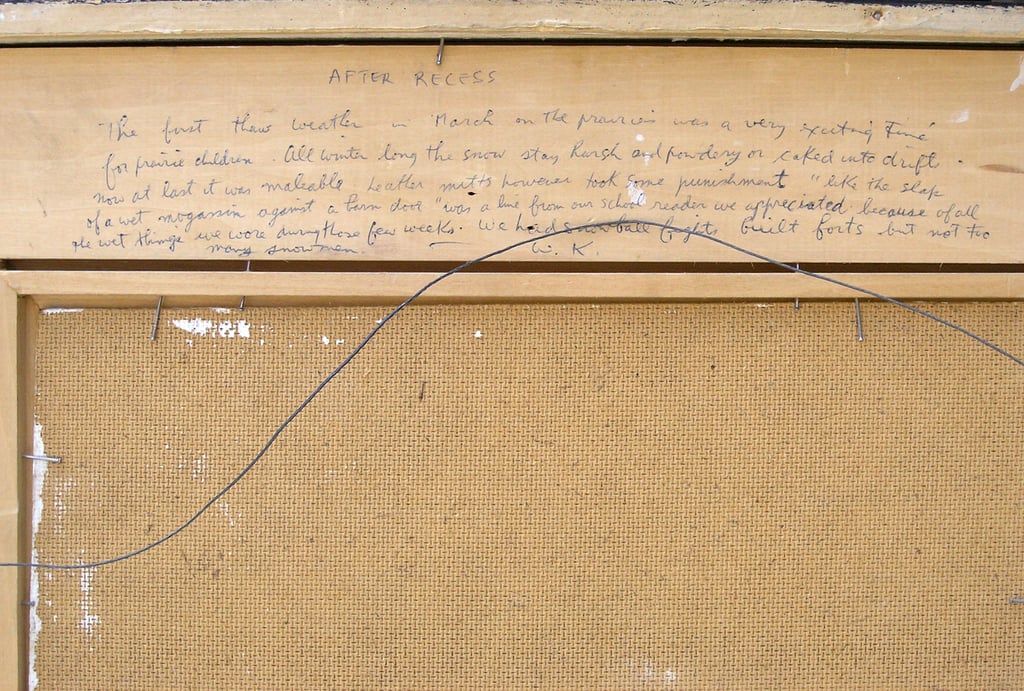 AFTER RECESS
The first thaw weather in March on the prairies was a very exciting time
for prairie children. All winter long the snow stay harsh and powdery or caked into drifts.
now at last it was maleable. Leather mitts however took some punishment "like the slap
of a wet mogassin against a barn door" was a line from our school reader we appreciated. because of all
the wet things we wore during those few weeks. We had snowball fights built forts but not too
many snow men. W. K.